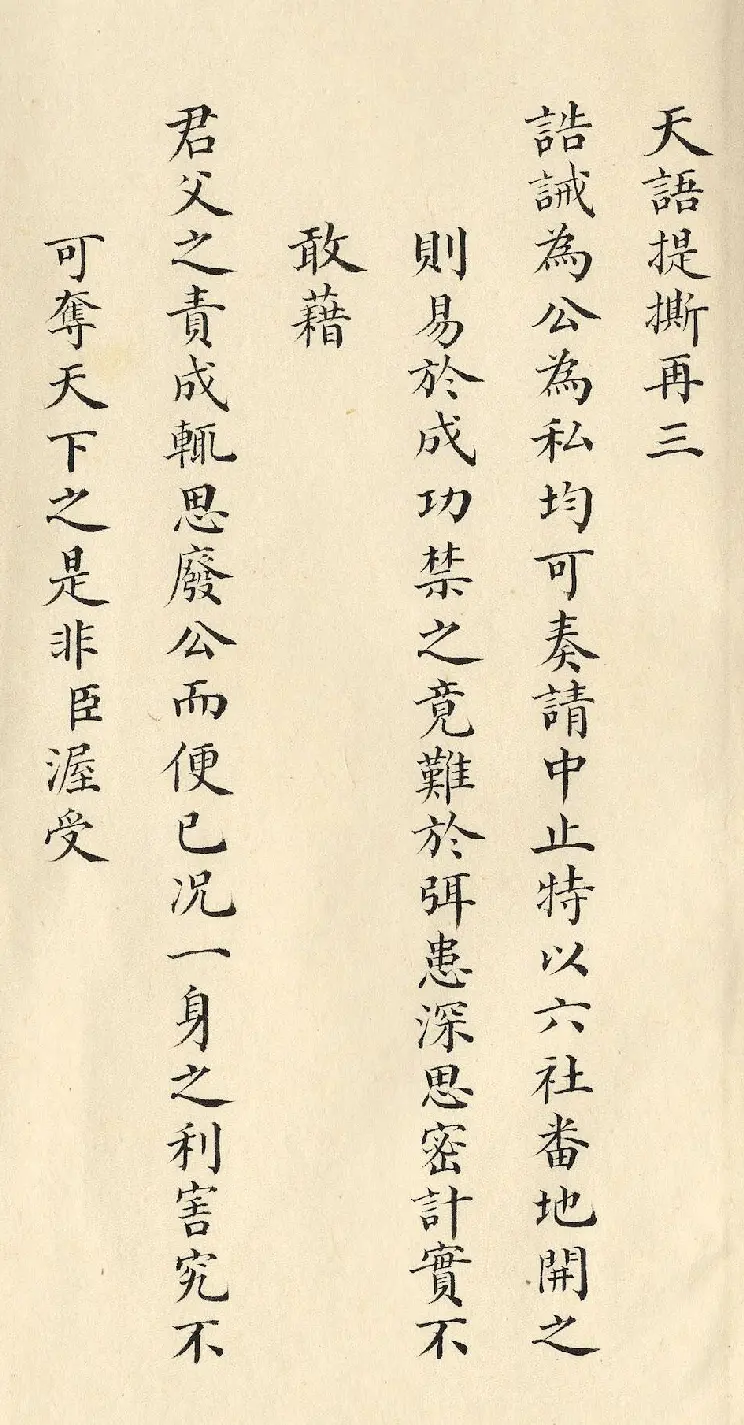 天語提撕再三
誥誡為公為私均可奏請中止特以六社番地開之
則易於成功禁之竟難於弭患深思密計實不
敢藉
君父之責成輒思廢公而便已况一身之利害究不
可奪天下之是非臣渥受